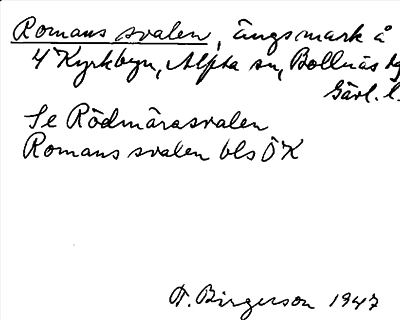 Romans svalen, ängsmark å
4 Kyrkbyn, Alfta sn, Bollnäs
Gävl. l.
Se Rödmårasvalen
Romans svalen bls ÖK
H. Birgerson 1947